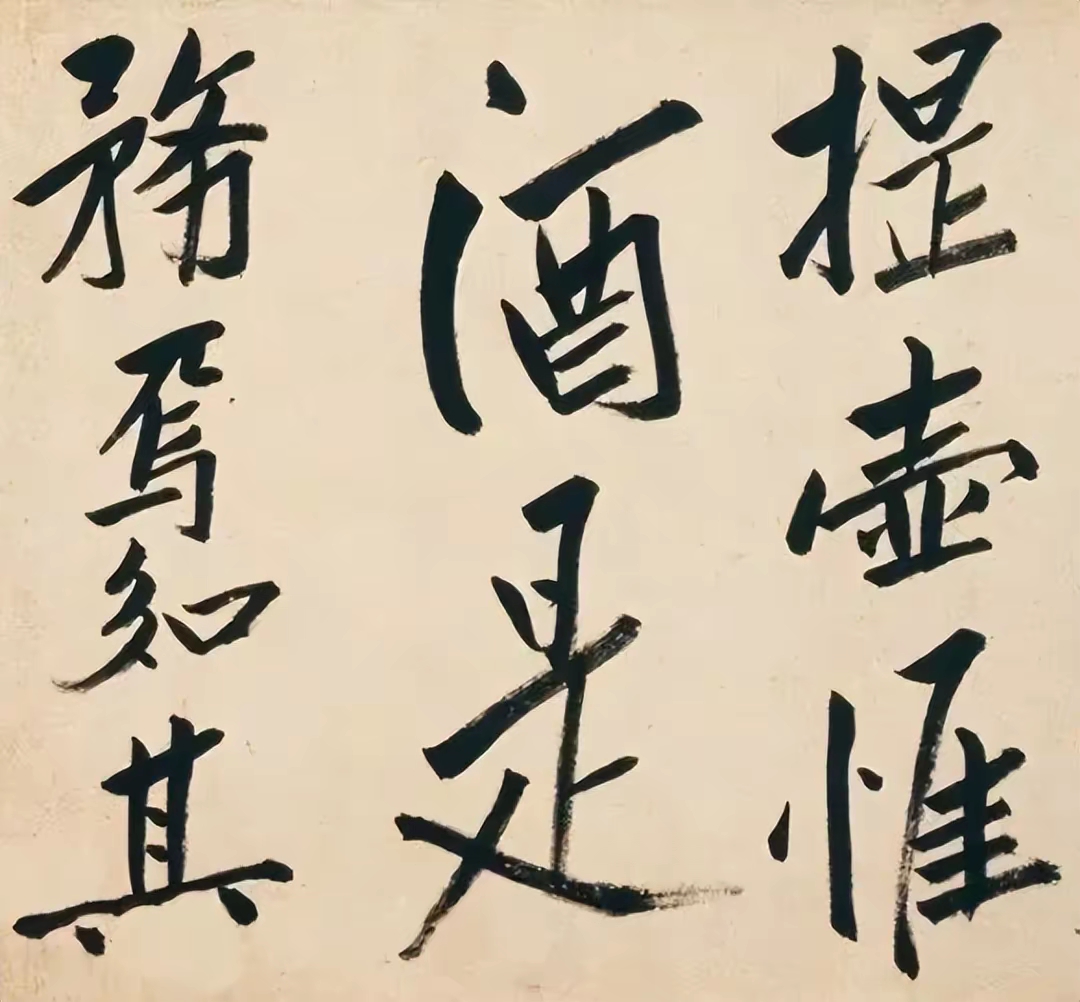 提壺惟
酒是
務焉知其